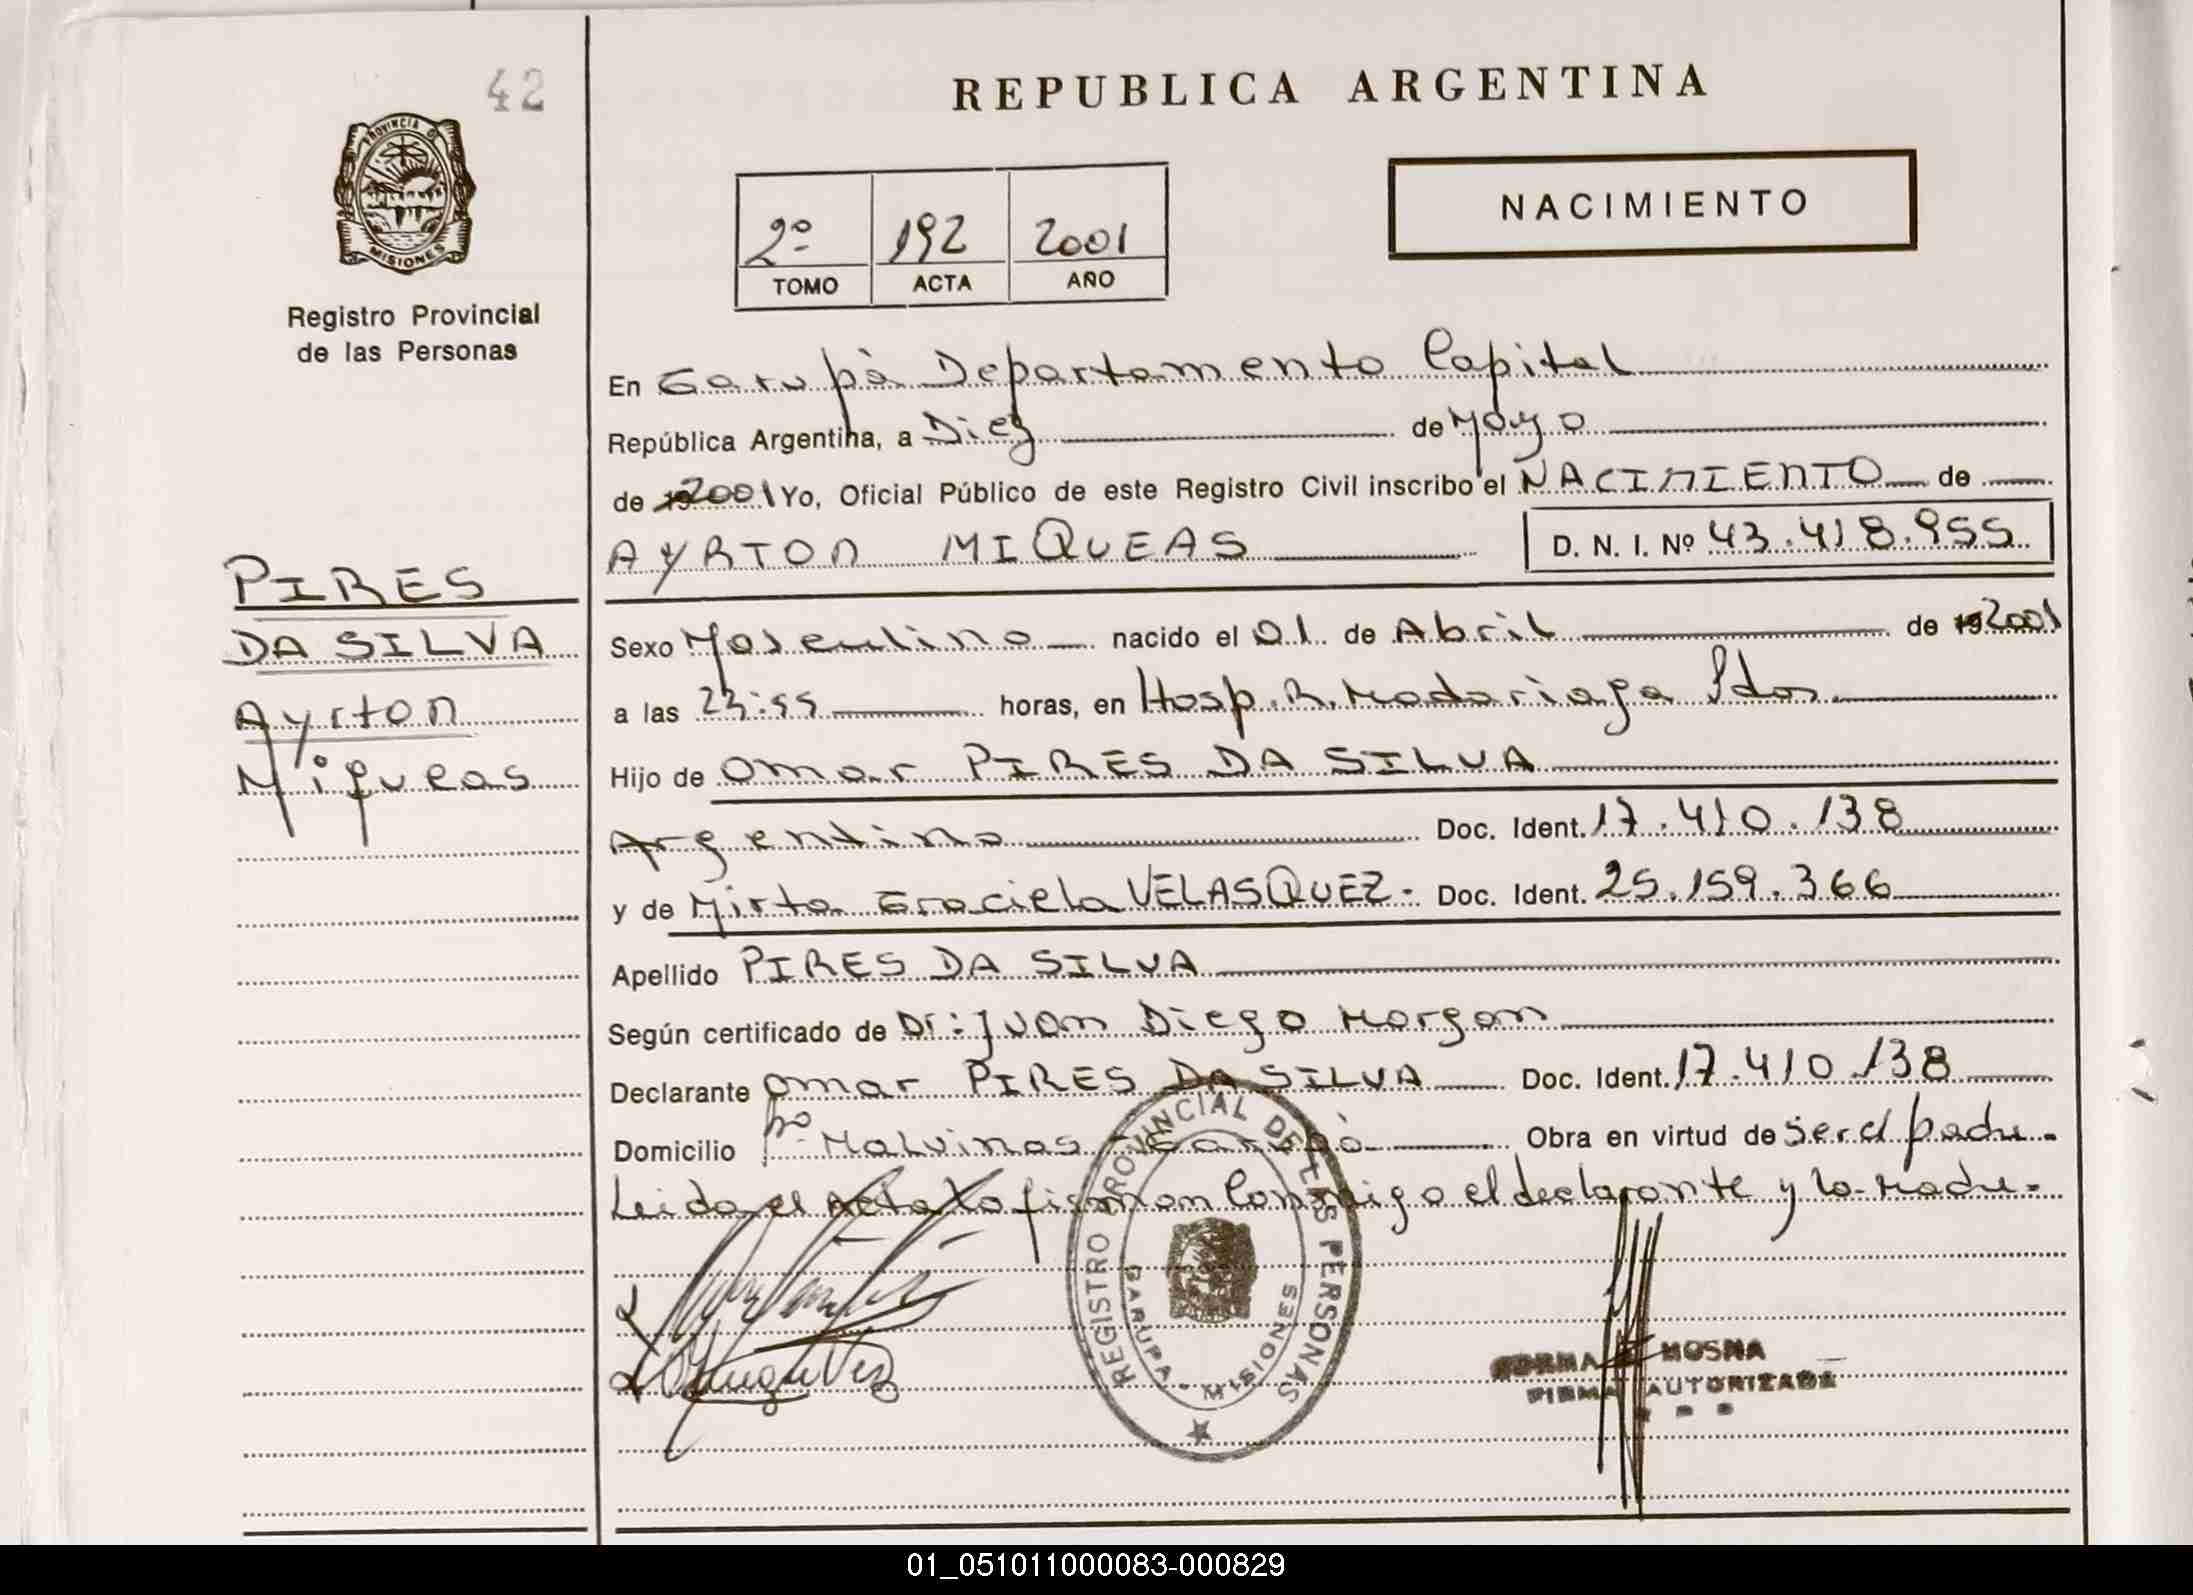 42
PROVINCIA D
MISIONES
Registro Provincial
de las Personas
PIRES
DA SILVA
Ayrton
Miqueas
REPUBLICA ARGENTINA
2º 192 2001
TOMO ACTA AÑO
NACIMIENTO
En Garupà Departamento Capital
República Argentina, a Diez de Mayo
de 192001 Yo, Oficial Público de este Registro Civil inscribo el NACIMIENTO de
AYRTON MIQUEAS D. N. I. Nº 43.418.955
Sexo Masculino nacido el 01 de Abril de 192001
a las 23:55 horas, en Hosp. R. Madariaga Pdas.
Hijo de Omar PIRES DA SILVA
Argentino Doc. Ident. 17.410.138
y de Mirta Graciela VELASQUEZ - Doc. Ident. 25.159.366
Apellido PIRES DA SILVA
Según certificado de Dr: Juan Diego Morgan
Declarante Omar PIRES DA SILVA Doc. Ident. 17.410.138
Domicilio Bº Malvinas - Garupà Obra en virtud de ser el padre.
Leida el Acta la firman conmigo el declarante y la Madre.
REGISTRO PROVINCIAL DE LAS PERSONAS
GARUPA - MISIONES
NORMA MOSNA
FIRMA AUTORIZADA
01_051011000083-000829